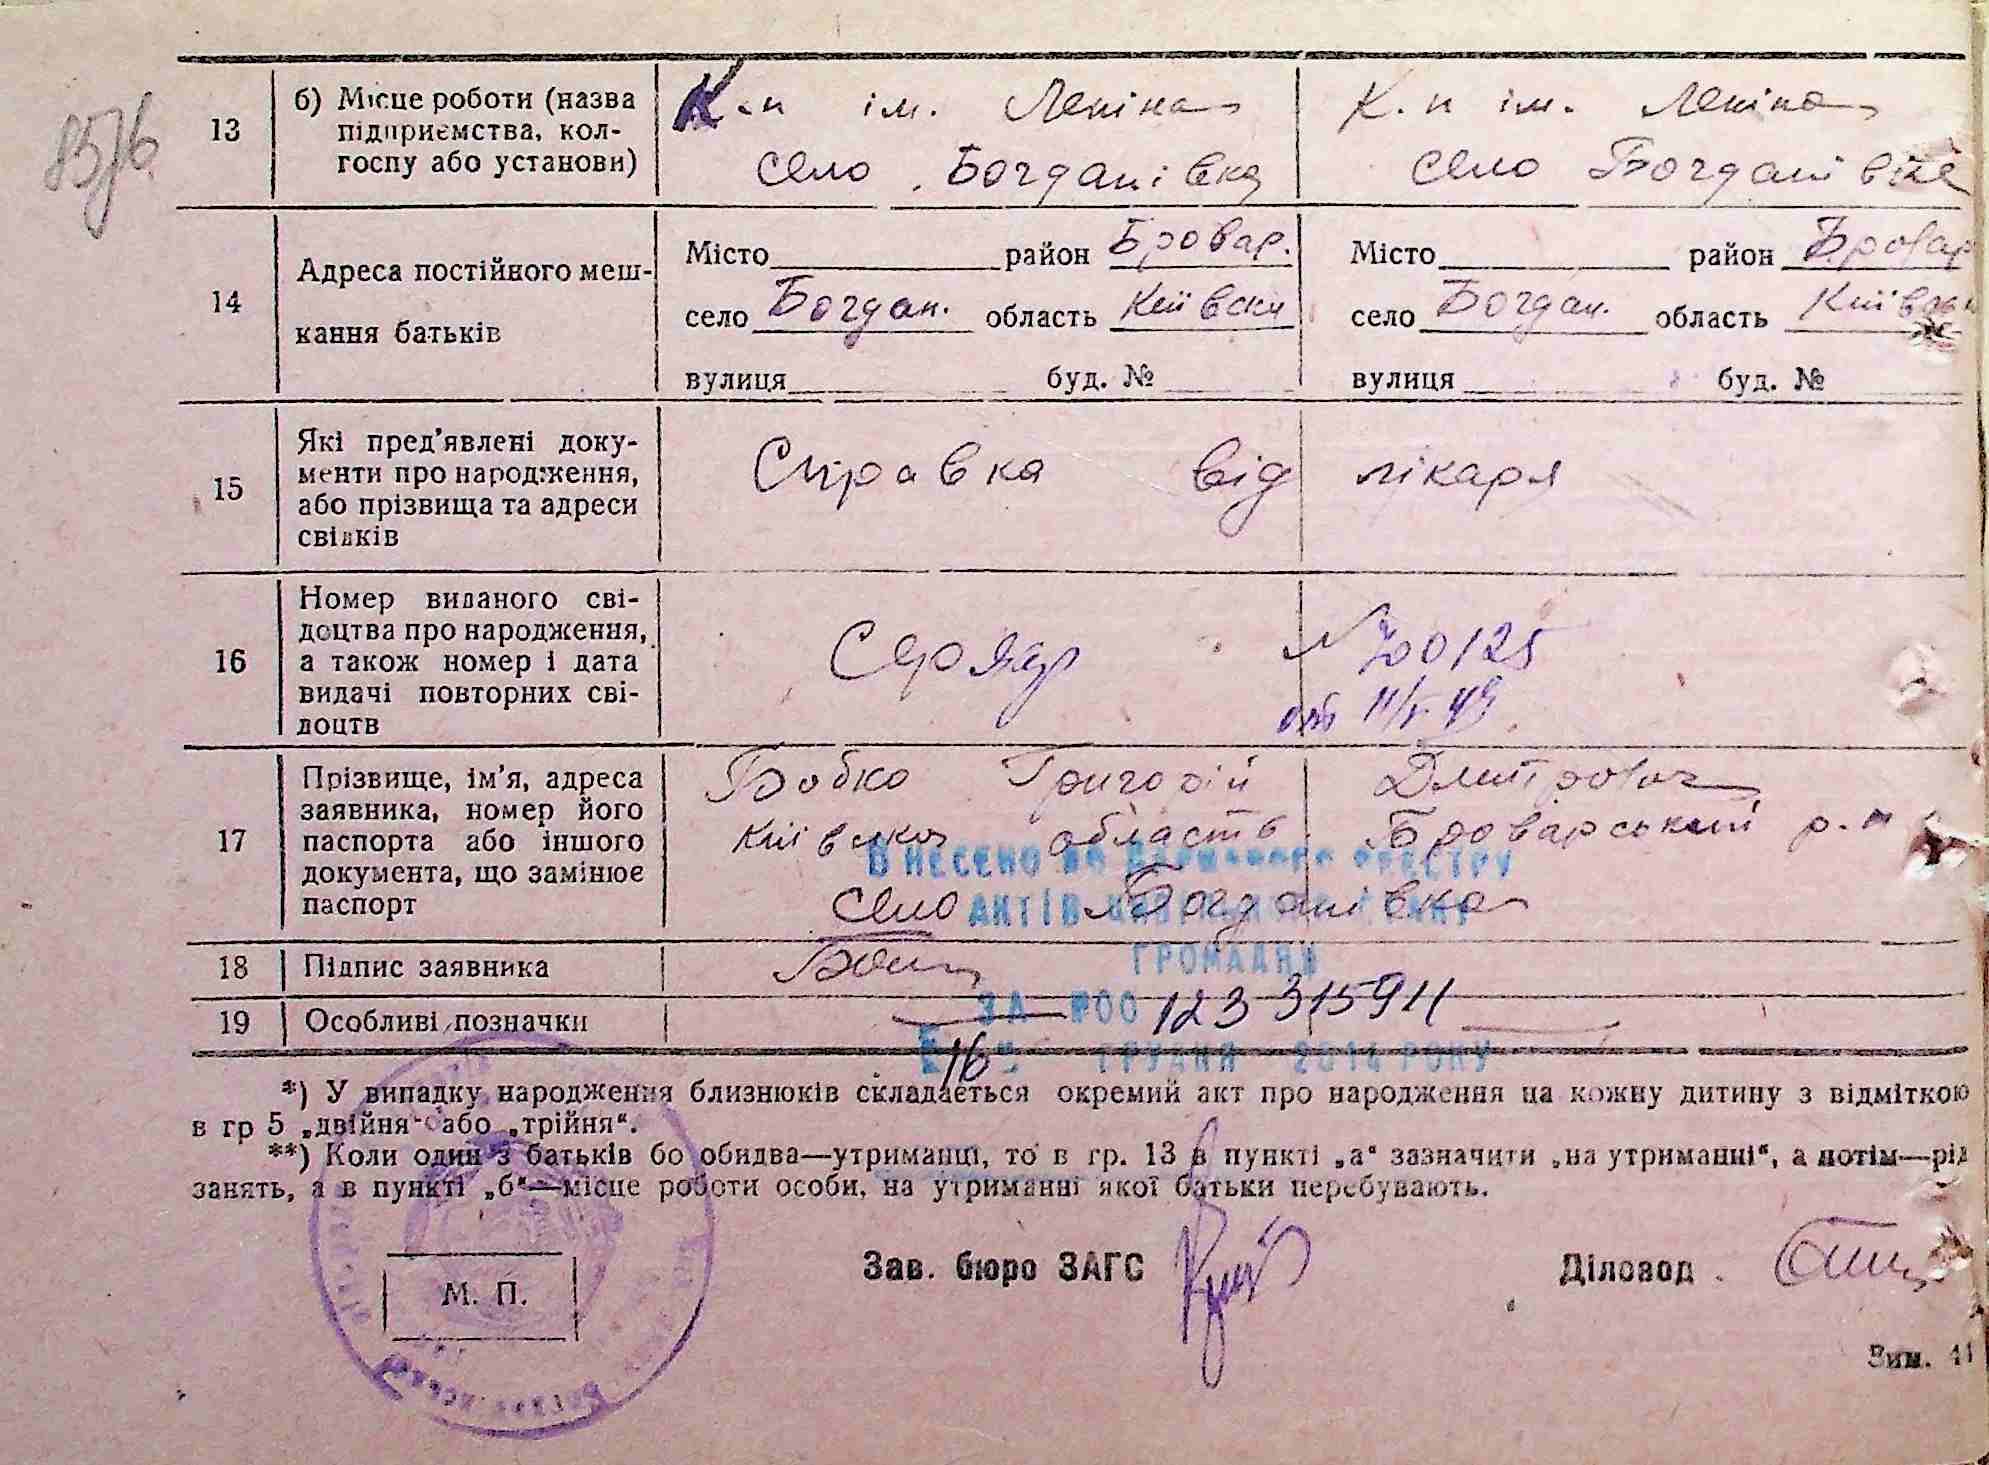 13 б) Місце роботи (назва підприємства, кол-
госпу або установи)
К-п ім. Леніна
село Богданівка
К.п ім. Леніна
село Богданівка
14 Адреса постійного меш-
кання батьків
Місто район Бровар.
село Богдан. область Київськ
вулиця буд. №
Місто район Бровар
село Богдан. область Київськ
вулиця буд. №
15 Які пред'явлені доку-
менти про народження,
або прізвища та адреси
свідків
Справка від лікаря
16 Номер виданого сві-
доцтва про народження,
а також номер і дата
видачі повторних сві-
доцтв
№ 700125
от 11/V-49
17 Прізвище, ім'я, адреса
заявника, номер його
паспорта або іншого
документа, що замінює
паспорт
Бобко Григорій Дмитрович
Київська область Броварський р-н
село Богданівка
ВНЕСЕНО ДО ДЕРЖАВНОГО РЕЄСТРУ
АКТІВ ЦИВІЛЬНОГО СТАНУ
ГРОМАДЯН
18 Підпис заявника
ЗА №00 123315911
19 Особливі позначки
16 ГРУДНЯ 2014 РОКУ
*) У випадку народження близнюків складається окремий акт про народження на кожну дитину з відміткою
в гр 5 „двійня“ або „трійня“.
**) Коли один з батьків бо обидва—утриманці, то в гр. 13 в пункті „а“ зазначити „на утриманні“, а потім—рід
занять, а в пункті „б“—місце роботи особи, на утриманні якої батьки перебувають.
М. П.
Зав. бюро ЗАГС
Діловод
Зим. 41